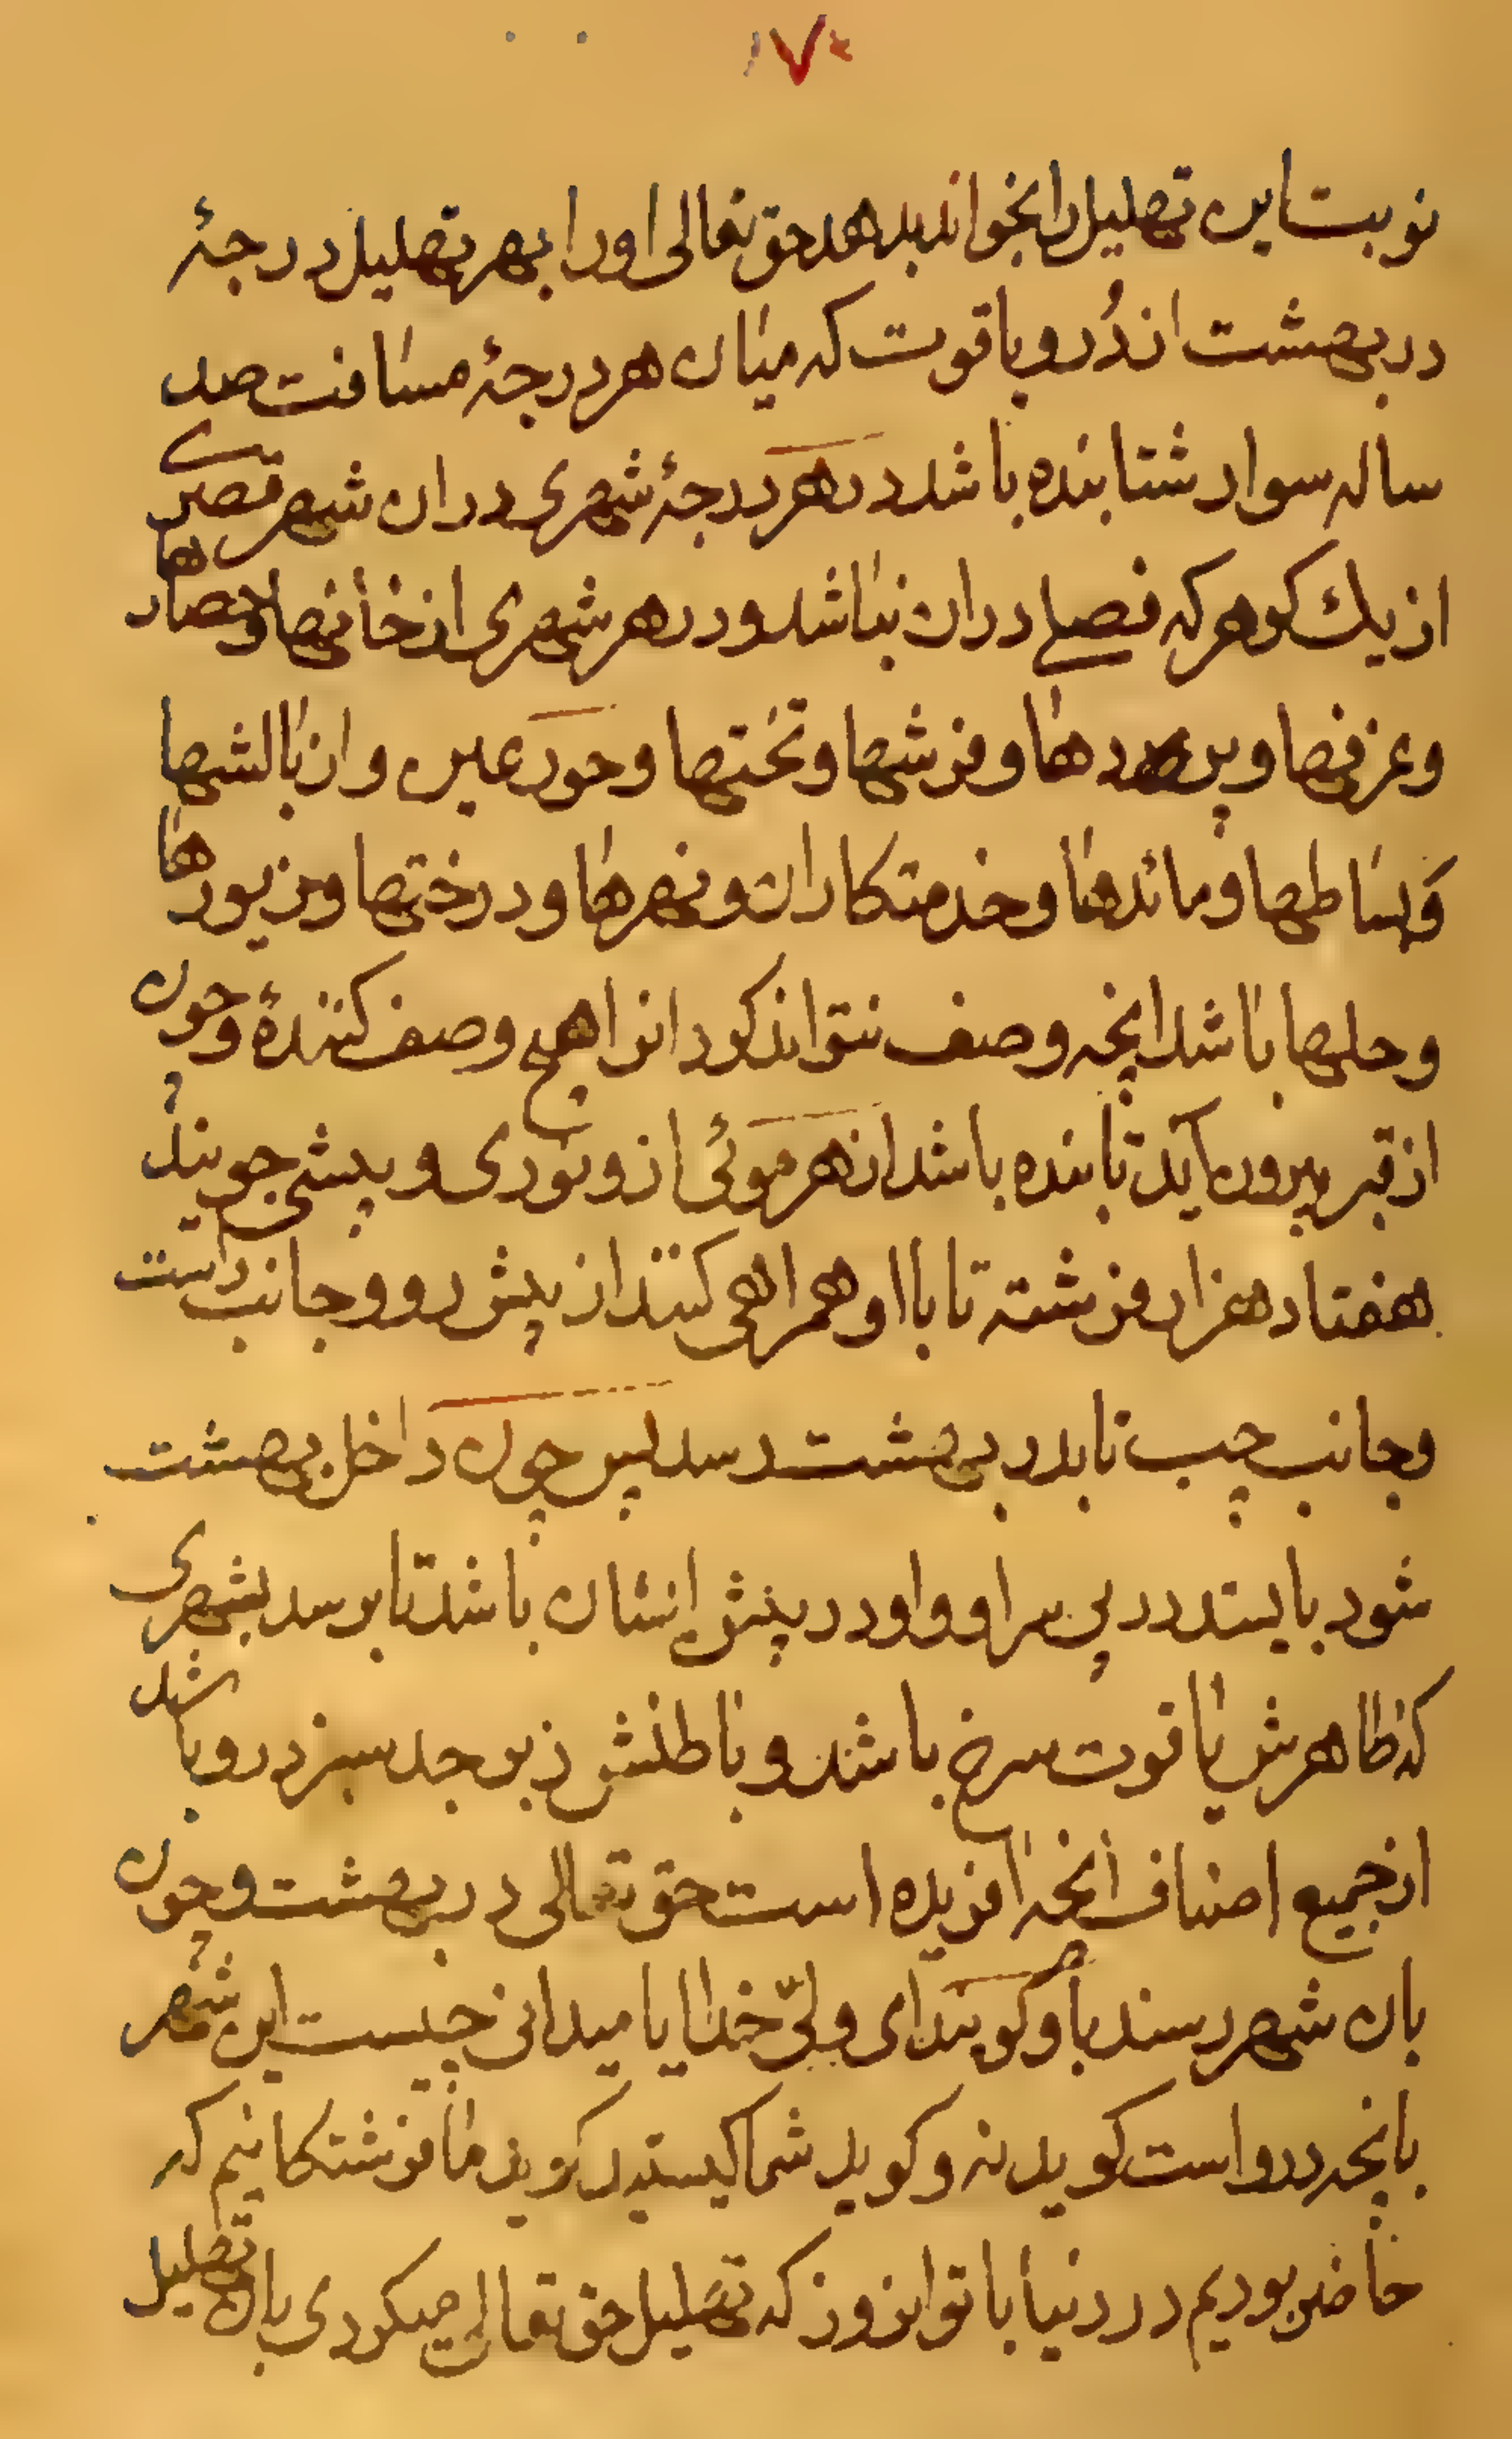 ۱۷۰
نوبت این تهلیل را بخواند بدهد حق تعالی او را بهر تهلیل درجهٔ
در بهشت از دُر و یاقوت که میان هر درجهٔ مسافت صد
ساله سوار شتابنده باشد در هر درجهٔ شهری در ان شهر قصری
از یك کوهر که فصلے در ان نباشد و در هر شهری از خانها و حصارها
و غرفها و پردها و فرشها و تختها و حور عین و از بالشها
و بساطها و مائدها و خدمتکاران و نهرها و درختها و زیورها
و حلها باشد انچه وصف نتواند کرد انرا هیچ وصف کنندهٔ و چون
از قبر بیرون آید تابنده باشد از هر موئی از و نوری و پیشی جویند
هفتاد هزار فرشته تا با او همراهی کنند از پیش رو و جانب راست
و جانب چپ تا بدر بهشت رسد پس چون داخل بهشت
شود بایستد در پی سر او و او در پیش ایشان باشد تا برسد بشهری
که ظاهرش یاقوت سرخ باشد و باطنش زبرجد سبز در و باشد
از جمیع اصناف انچه افریده است حق تعالی در بهشت و چون
بان شهر رسند باو کویند ای ولیّ خدا ایا میدانی چیست این شهر
بانچه در و است کوید نه و کوید شما کیستید کویند ما فرشتکانیم که
حاضر بودیم در دنیا با تو انروز که تهلیل حق تعالی میکردی بان تهلیل